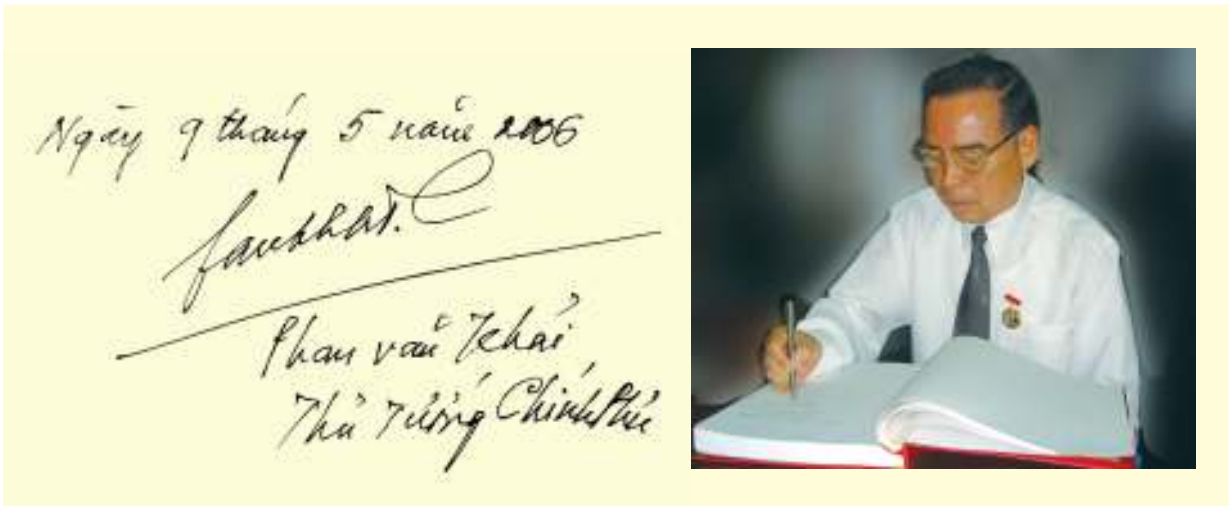 Ngày 9 tháng 5 năm 2006
Phan văn Khải
Thủ Tướng Chính Phủ